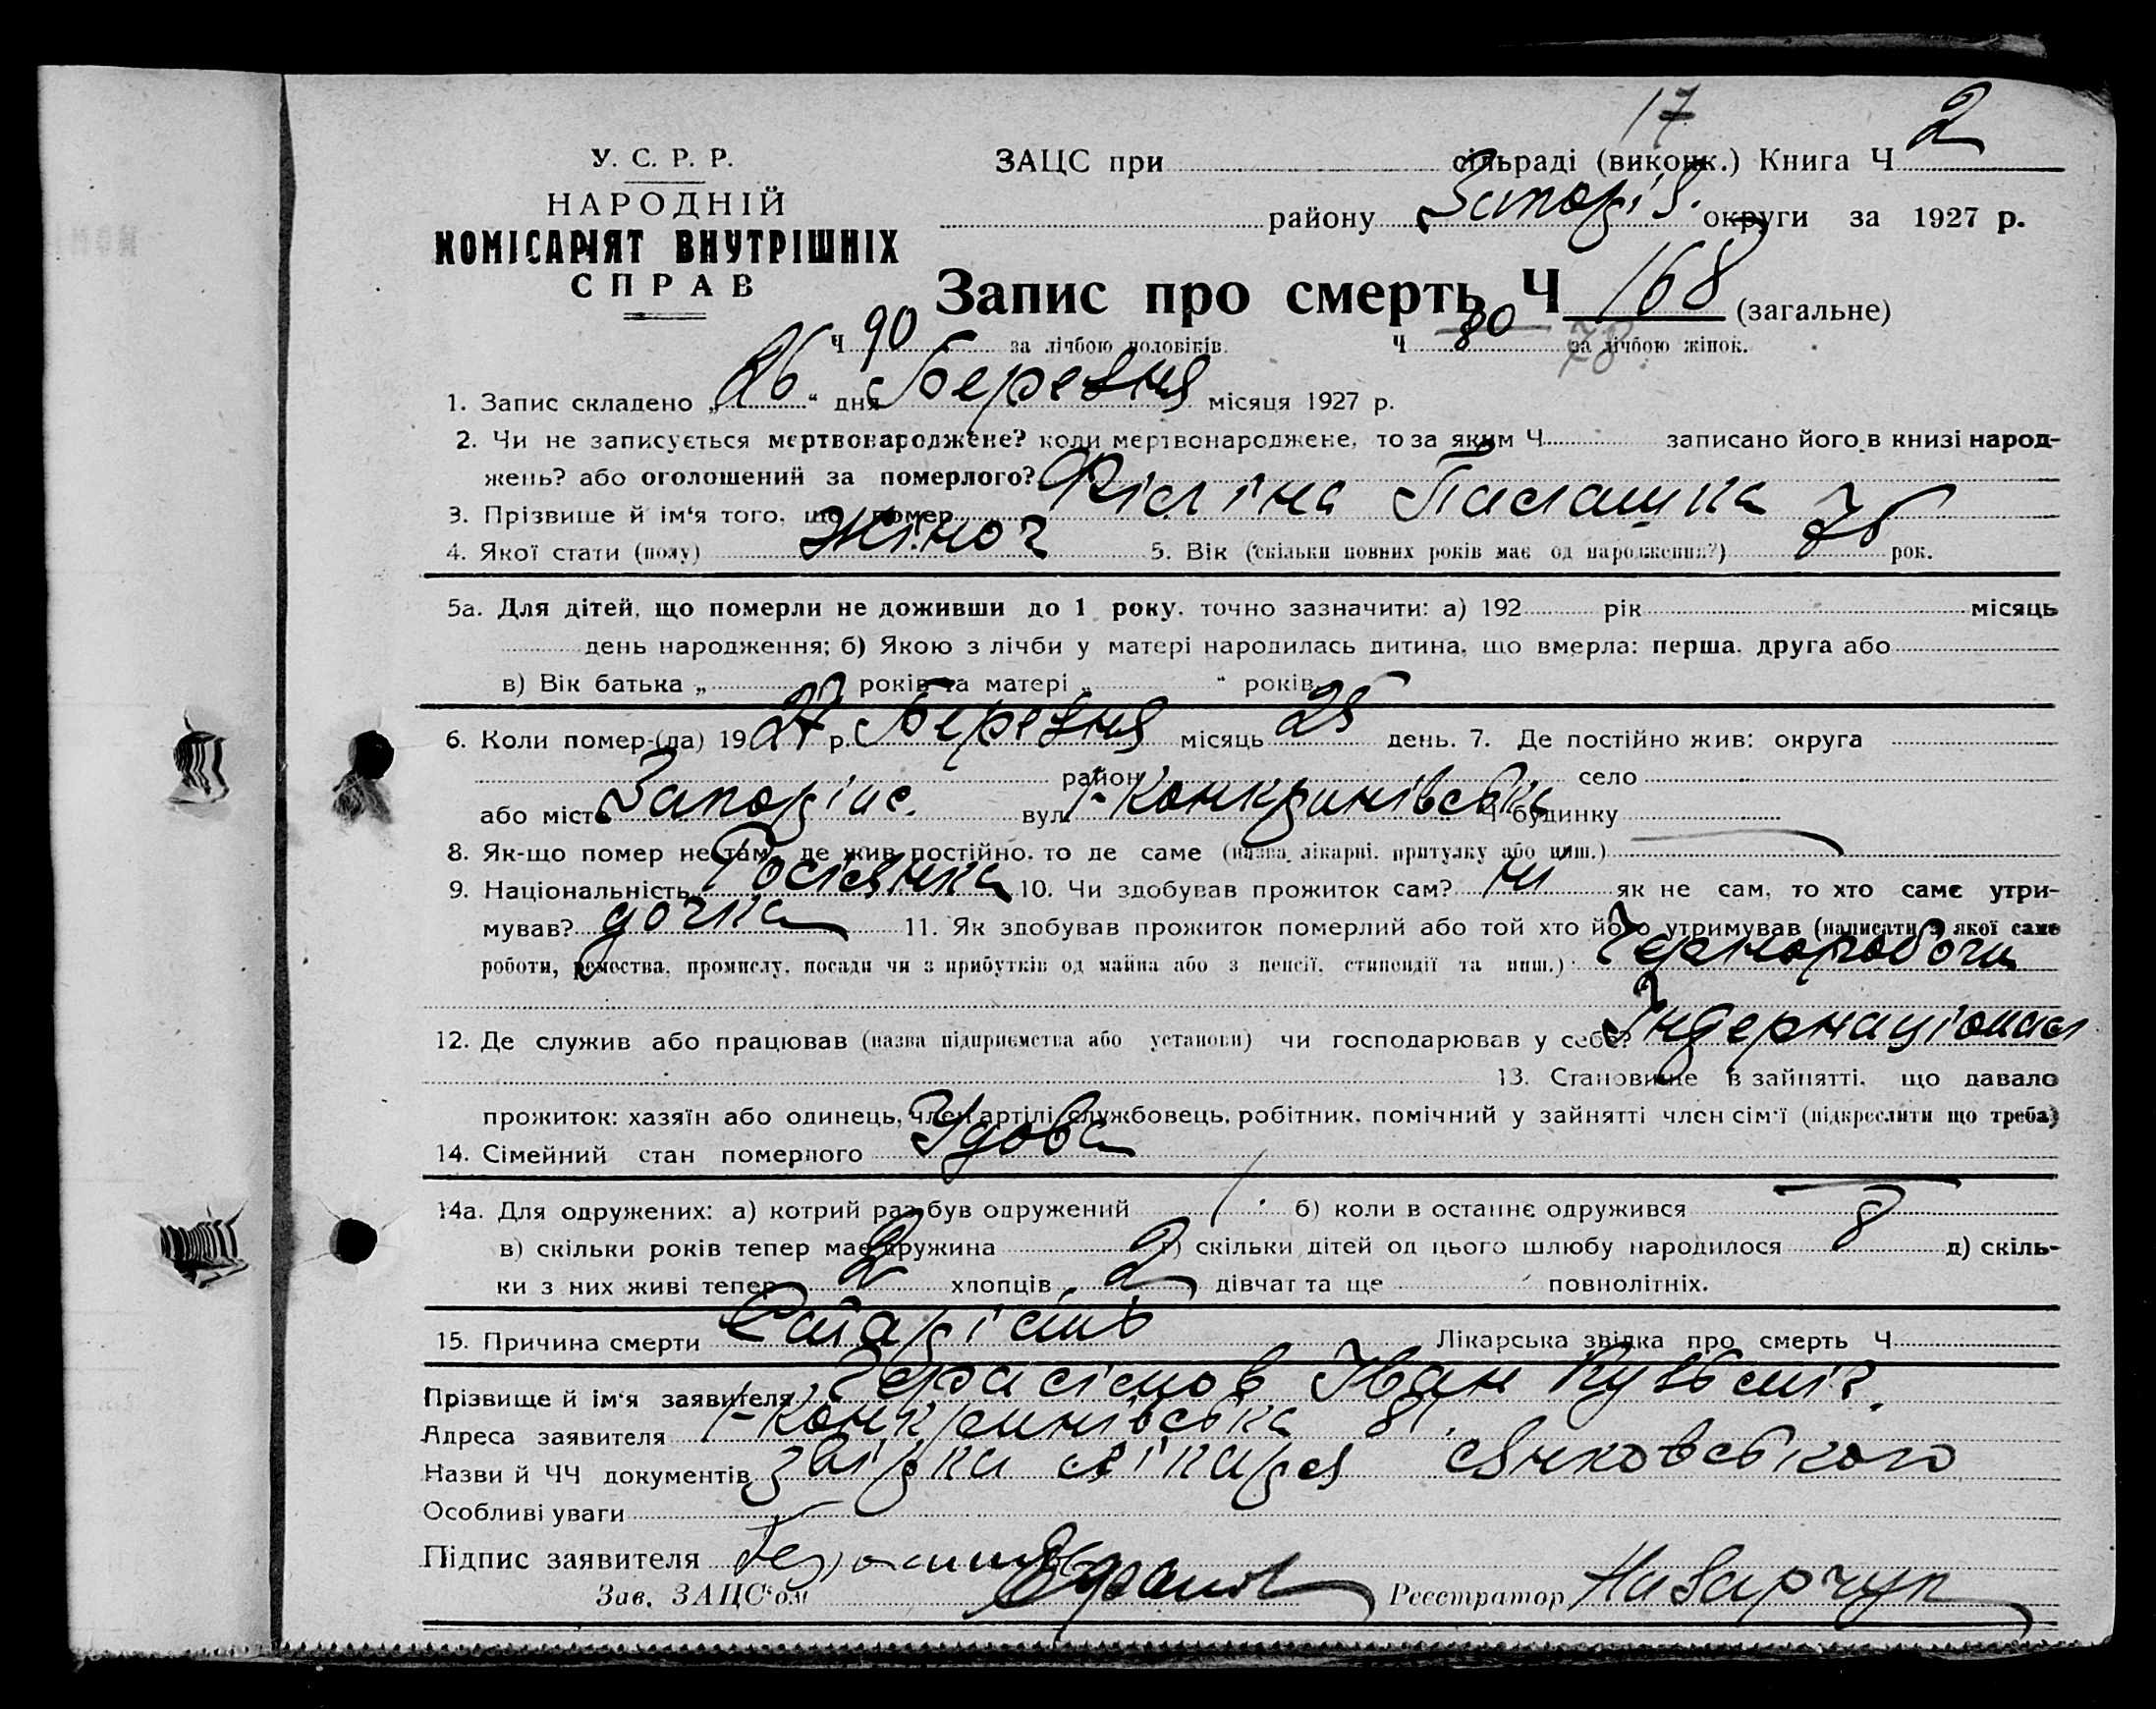 17 2
У. С. Р. Р. ЗАЦС при сільраді (виконк.) Книга Ч
НАРОДНІЙ району Запоріз. округи за 1927 р.
КОМІСАРІЯТ ВНУТРІШНІХ
СПРАВ
Запис про смерть Ч 168 (загальне)
Ч 90 за лічбою чоловіків. Ч 80 78 за лічбою жінок.
1. Запис складено „ 26 “ дня Березня місяця 1927 р.
2. Чи не записується мертвонароджене? коли мертвонароджене, то за яким Ч записано його в книзі народ-
жень? або оголошений за померлого?
3. Прізвище й ім'я того, що помер Параска
4. Якої стати (полу) Жіноч 5. Вік (скільки повних років має од народження?) 75 рок.
5а. Для дітей, що померли не доживши до 1 року, точно зазначити: а) 192 рік місяць
день народження; б) Якою з лічби у матері народилась дитина, що вмерла: перша, друга або
в) Вік батька „ років та матері „ “ років.
6. Коли помер-(ла) 1927 р. Березня місяць 25 день. 7. Де постійно жив: округа
район село
або місто Запоріжс. вул. 1-Конкринівська Ч будинку
8. Як-що помер не там, де жив постійно, то де саме (назва лікарні, притулку або инш.)
9. Національність Росіянка 10. Чи здобував прожиток сам? ні як не сам, то хто саме утри-
мував? дочка 11. Як здобував прожиток померлий або той хто його утримував (написати з якої саме
роботи, ремества, промислу, посади чи з прибутків од майна або з пенсії, стипендії та инш.) Чернороботи
12. Де служив або працював (назва підприємства або установи) чи господарював у себе? Інтернаціонал
13. Становище в зайнятті, що давало
прожиток: хазяїн або одинець, член артілі, службовець, робітник, помічний у зайнятті член сім'ї (підкреслити що треба)
14. Сімейний стан померлого Удова
14а. Для одружених: а) котрий раз був одружений 1 б) коли в останнє одружився
в) скільки років тепер має дружина г) скільки дітей од цього шлюбу народилося 8 д) скіль-
ки з них живі тепер 2 хлопців 2 дівчат та ще повнолітніх.
15. Причина смерти Старість Лікарська звідка про смерть Ч
Прізвище й ім'я заявителя Герасімов Іван Кузьміч
Адреса заявителя 1-Конкринівська 81.
Назви й ЧЧ документів звідка лікаря Янковського
Особливі уваги
Підпис заявителя Герасимов
Зав. ЗАЦС'ом Реєстратор Назарчук